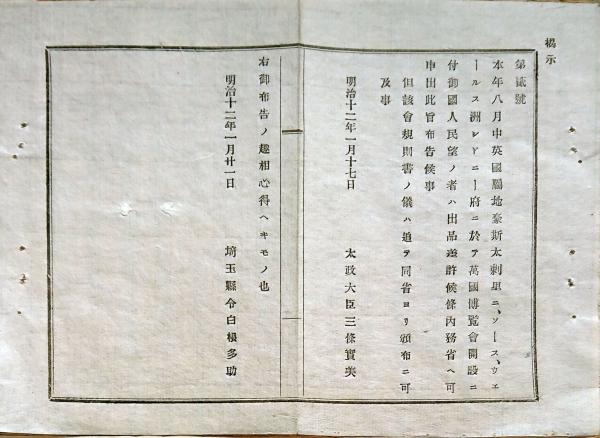 揭示
第貳號
本年八月中英國屬地豪斯太剌里ニ、ソース、ウエ
ールス洲シドニー府ニ於テ萬國博覽會開設ニ
付御國人民望ノ者ハ出品差許候條內務省ヘ可
申出此旨布告候事
但該會規則書ノ儀ハ追テ同省ヨリ頒布ニ可
及事
明治十二年一月十七日 太政大臣三條實美
右御布告ノ趣相心得ヘキモノ也
明治十二年一月廿一日 埼玉縣令白根多助